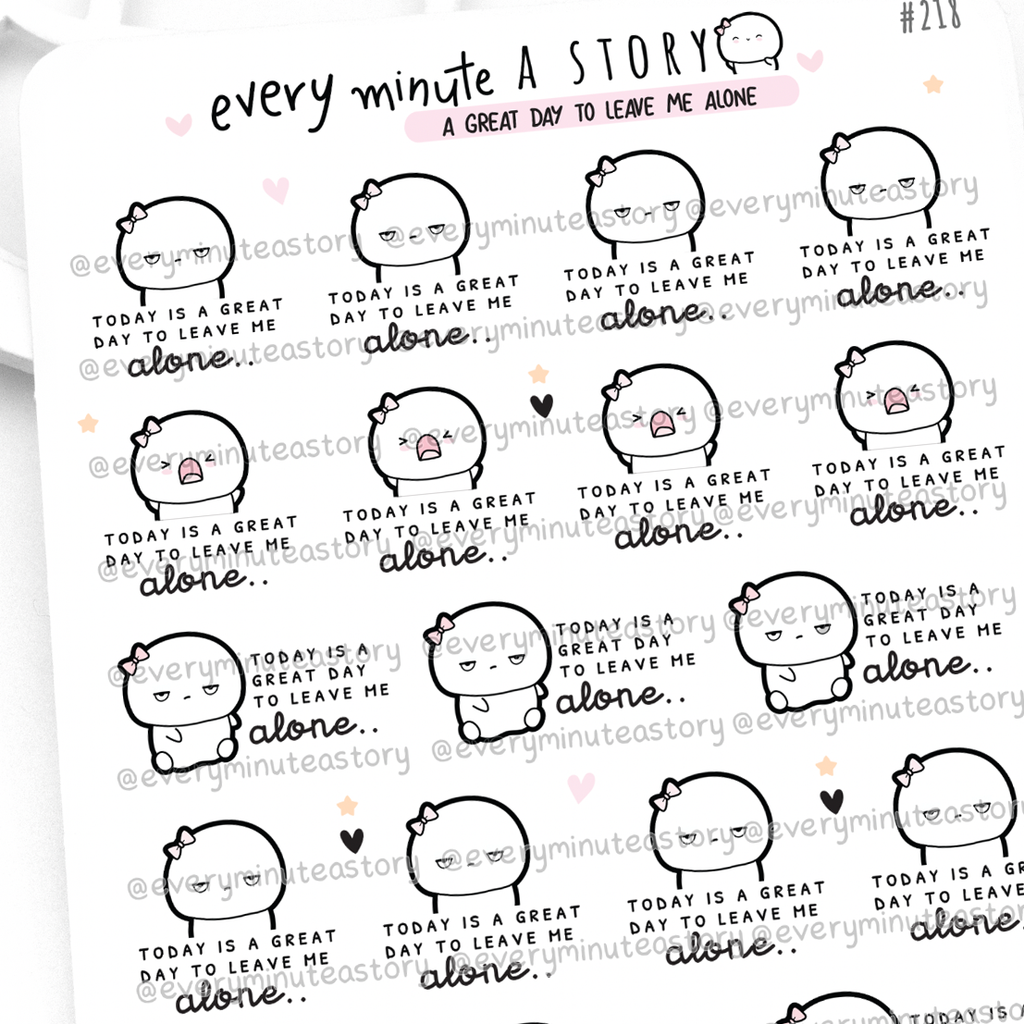 #218
every minute A STORY
A GREAT DAY TO LEAVE ME ALONE
@everyminuteastory @everyminuteastory @everyminuteastory
TODAY IS A GREAT
DAY TO LEAVE ME
alone..
TODAY IS A GREAT
DAY TO LEAVE ME
alone..
TODAY IS A GREAT
DAY TO LEAVE ME
alone..
TODAY IS A GREAT
DAY TO LEAVE ME
alone..
@everyminuteastory @everyminuteastory @everyminuteastory
@everyminuteastory @everyminuteastory @everyminuteastory
TODAY IS A GREAT
DAY TO LEAVE ME
alone..
TODAY IS A GREAT
DAY TO LEAVE ME
alone..
TODAY IS A GREAT
DAY TO LEAVE ME
alone..
TODAY IS A GREAT
DAY TO LEAVE ME
alone..
@everyminuteastory @everyminuteastory @everyminuteastory
@everyminuteastory @everyminuteastory @everyminuteastory
TODAY IS A
GREAT DAY
TO LEAVE ME
alone..
TODAY IS A
GREAT DAY
TO LEAVE ME
alone..
TODAY IS A
GREAT DAY
TO LEAVE ME
alone..
@everyminuteastory @everyminuteastory @everyminuteastory
@everyminuteastory @everyminuteastory @everyminuteastory
TODAY IS A GREAT
DAY TO LEAVE ME
alone..
TODAY IS A GREAT
DAY TO LEAVE ME
alone..
TODAY IS A GREAT
DAY TO LEAVE ME
alone..
TODAY IS A GREAT
DAY TO LEAVE
alone.
@everyminuteastory @everyminuteastory @everyminuteastory
TODAY IS